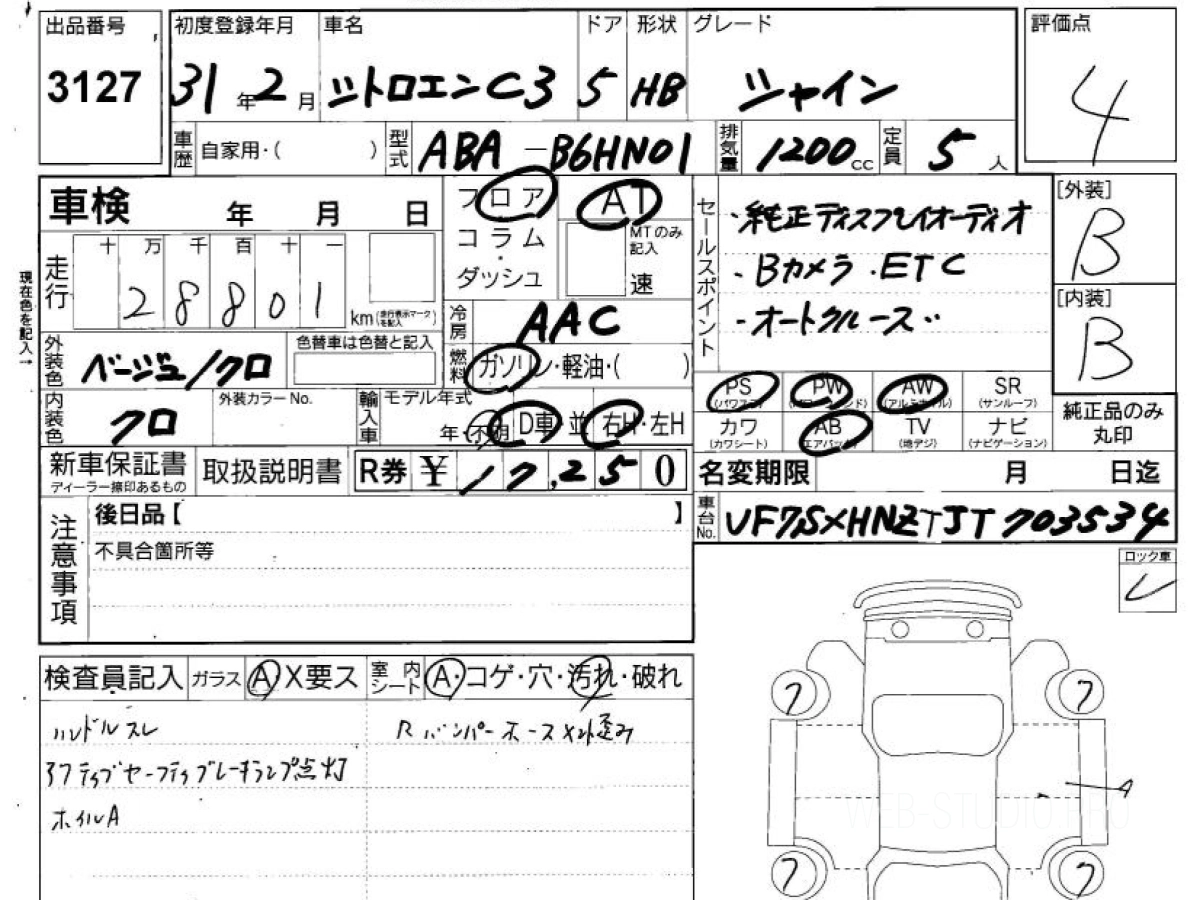 出品番号 初度登録年月 車名 ドア 形状 グレード 評価点
3127 31年2月 シトロエンC3 5 HB シャイン 4
車歴 自家用・( ) 型式 ABA-B6HN01 排気量 1200cc 定員 5人
車検 年 月 日 フロア AT セールスポイント ・純正ディスプレイオーディオ [外装]
コラム MTのみ記入 B
十 万 千 百 十 一
走行 28801 km(走行表示マークを記入) ・ダッシュ 速 ・Bカメラ・ETC
現在色を記入→
冷房 AAC ・オートクルーズ [内装]
外装色 ベージュ/クロ 色替車は色替と記入 燃料 ガソリン・軽油・( ) B
PS PW AW SR
(パワステ) (パワーウィンド) (アルミホイル) (サンルーフ)
内装色 クロ 外装カラーNo. 輸入車 モデル年式 年(不明) D車 並 右H・左H カワ AB TV ナビ 純正品のみ
(カワシート) (エアバッグ) (地デジ) (ナビゲーション) 丸印
新車保証書 取扱説明書 R券 ¥ 17,250 名変期限 月 日迄
ディーラー捺印あるもの
注意事項 後日品【 】 車台No. VF7SXHNZTJT703534
不具合箇所等 ロック車
レ
検査員記入 ガラス A X要ス 室内シート A・コゲ・穴・汚れ・破れ
ハンドルスレ Rバンパーホースメント歪み
アクティブセーフティブレーキランプ点灯
ホイルA
7 7
A
WEB-STUDIO.PRO
7 7